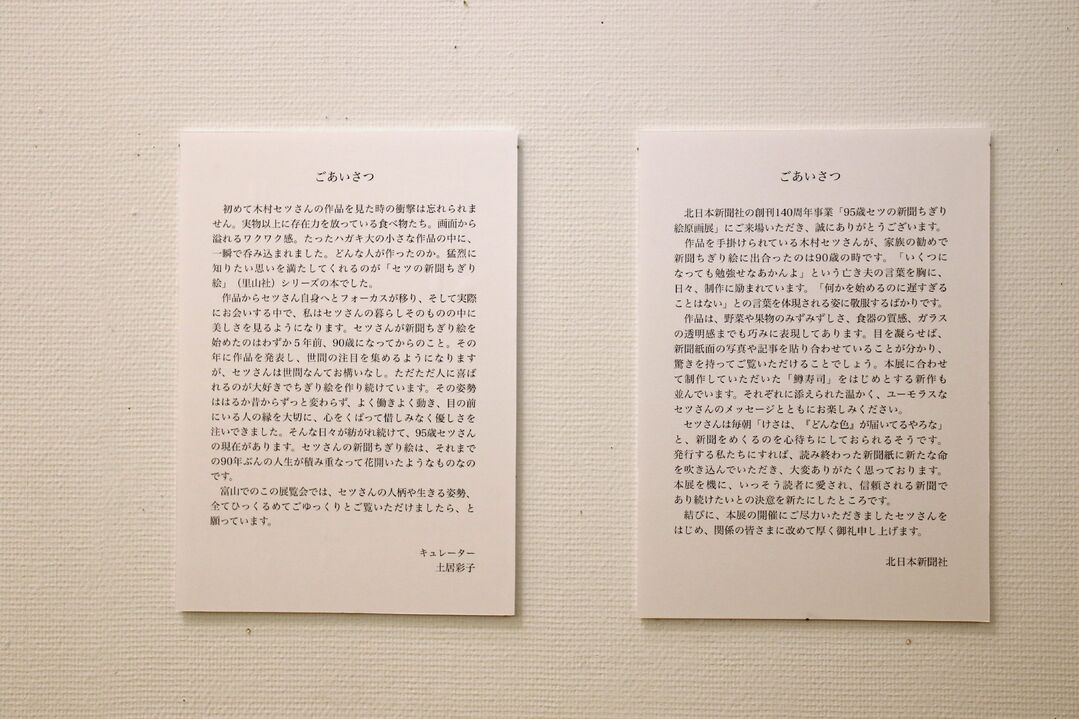 ごあいさつ
初めて木村セツさんの作品を見た時の衝撃は忘れられま
せん。実物以上に存在力を放っている食べ物たち。画面から
溢れるワクワク感。たったハガキ大の小さな作品の中に、
一瞬で呑み込まれました。どんな人が作ったのか。猛烈に
知りたい思いを満たしてくれるのが「セツの新聞ちぎり
絵」（里山社）シリーズの本でした。
作品からセツさん自身へとフォーカスが移り、そして実際
にお会いする中で、私はセツさんの暮らしそのものの中に
美しさを見るようになります。セツさんが新聞ちぎり絵を
始めたのはわずか５年前、90歳になってからのこと。その
年に作品を発表し、世間の注目を集めるようになります
が、セツさんは世間なんてお構いなし。ただただ人に喜ば
れるのが大好きでちぎり絵を作り続けています。その姿勢
ははるか昔からずっと変わらず、よく働きよく動き、目の前
にいる人の縁を大切に、心をくばって惜しみなく優しさを
注いできました。そんな日々が紡がれ続けて、95歳セツさん
の現在があります。セツさんの新聞ちぎり絵は、それまで
の90年ぶんの人生が積み重なって花開いたようなものなの
です。
富山でのこの展覧会では、セツさんの人柄や生きる姿勢、
全てひっくるめてごゆっくりとご覧いただけましたら、と
願っています。
キュレーター
土居彩子
ごあいさつ
北日本新聞社の創刊140周年事業「95歳セツの新聞ちぎり
絵原画展」にご来場いただき、誠にありがとうございます。
作品を手掛けられている木村セツさんが、家族の勧めで
新聞ちぎり絵に出合ったのは90歳の時です。「いくつに
なっても勉強せなあかんよ」という亡き夫の言葉を胸に、
日々、制作に励まれています。「何かを始めるのに遅すぎる
ことはない」との言葉を体現される姿に敬服するばかりです。
作品は、野菜や果物のみずみずしさ、食器の質感、ガラス
の透明感までも巧みに表現してあります。目を凝らせば、
新聞紙面の写真や記事を貼り合わせていることが分かり、
驚きを持ってご覧いただけることでしょう。本展に合わせ
て制作していただいた「鱒寿司」をはじめとする新作も
並んでいます。それぞれに添えられた温かく、ユーモラスな
セツさんのメッセージとともにお楽しみください。
セツさんは毎朝「けさは、『どんな色』が届いてるやろな」
と、新聞をめくるのを心待ちにしておられるそうです。
発行する私たちにすれば、読み終わった新聞紙に新たな命
を吹き込んでいただき、大変ありがたく思っております。
本展を機に、いっそう読者に愛され、信頼される新聞で
あり続けたいとの決意を新たにしたところです。
結びに、本展の開催にご尽力いただきましたセツさんを
はじめ、関係の皆さまに改めて厚く御礼申し上げます。
北日本新聞社